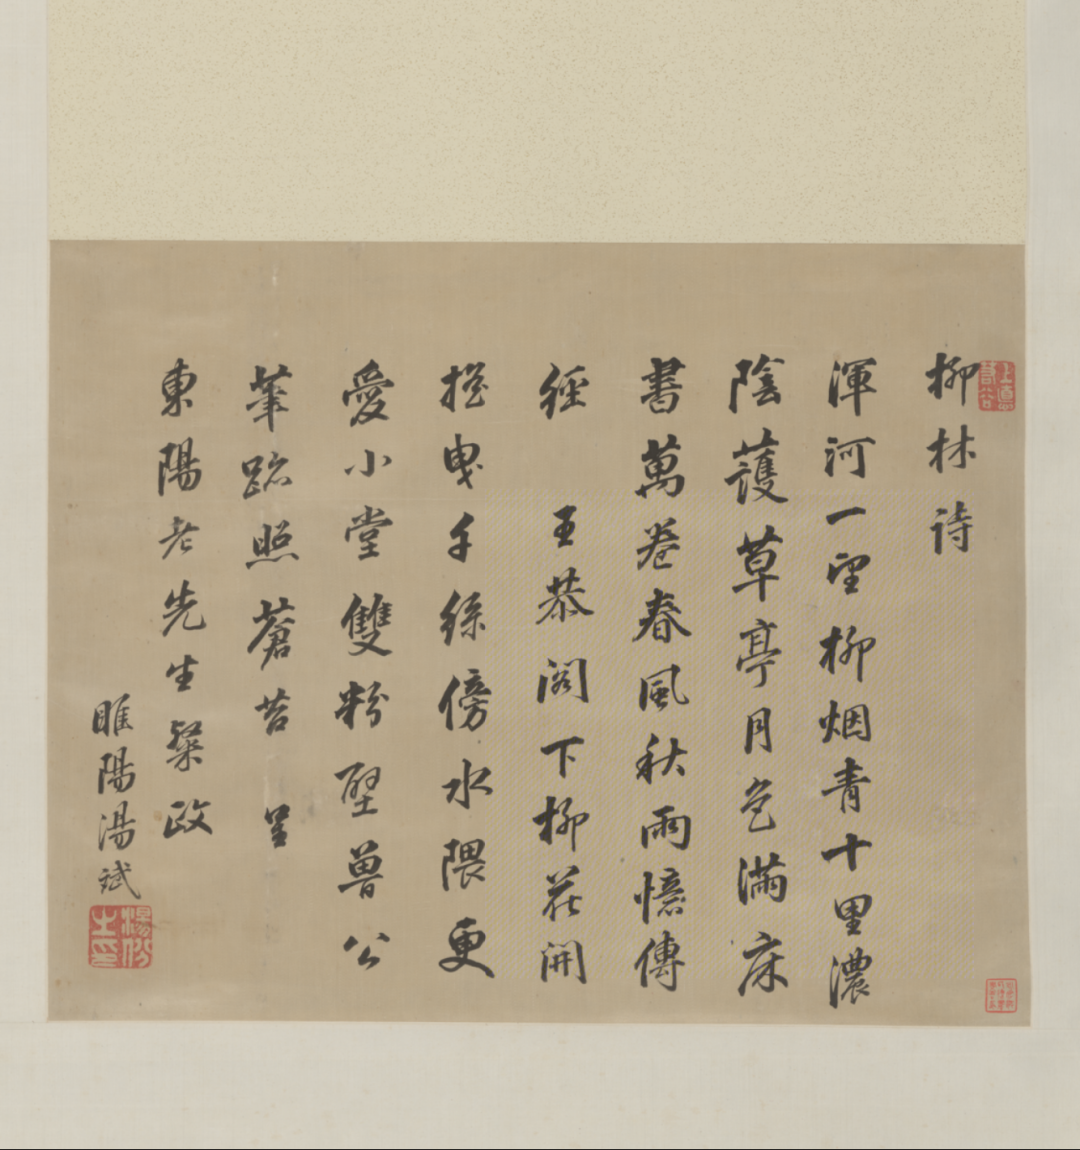 柳林诗
渾河一望柳烟青十里濃
陰護草亭月色滿床
書萬卷春風秋雨憶傳
經 王恭阁下柳花開
摇曳千絲傍水隈更
愛小堂雙粉壁曾公
筆跡照蒼苔 呈
東陽老先生粲政
睢陽湯斌
湯斌之印